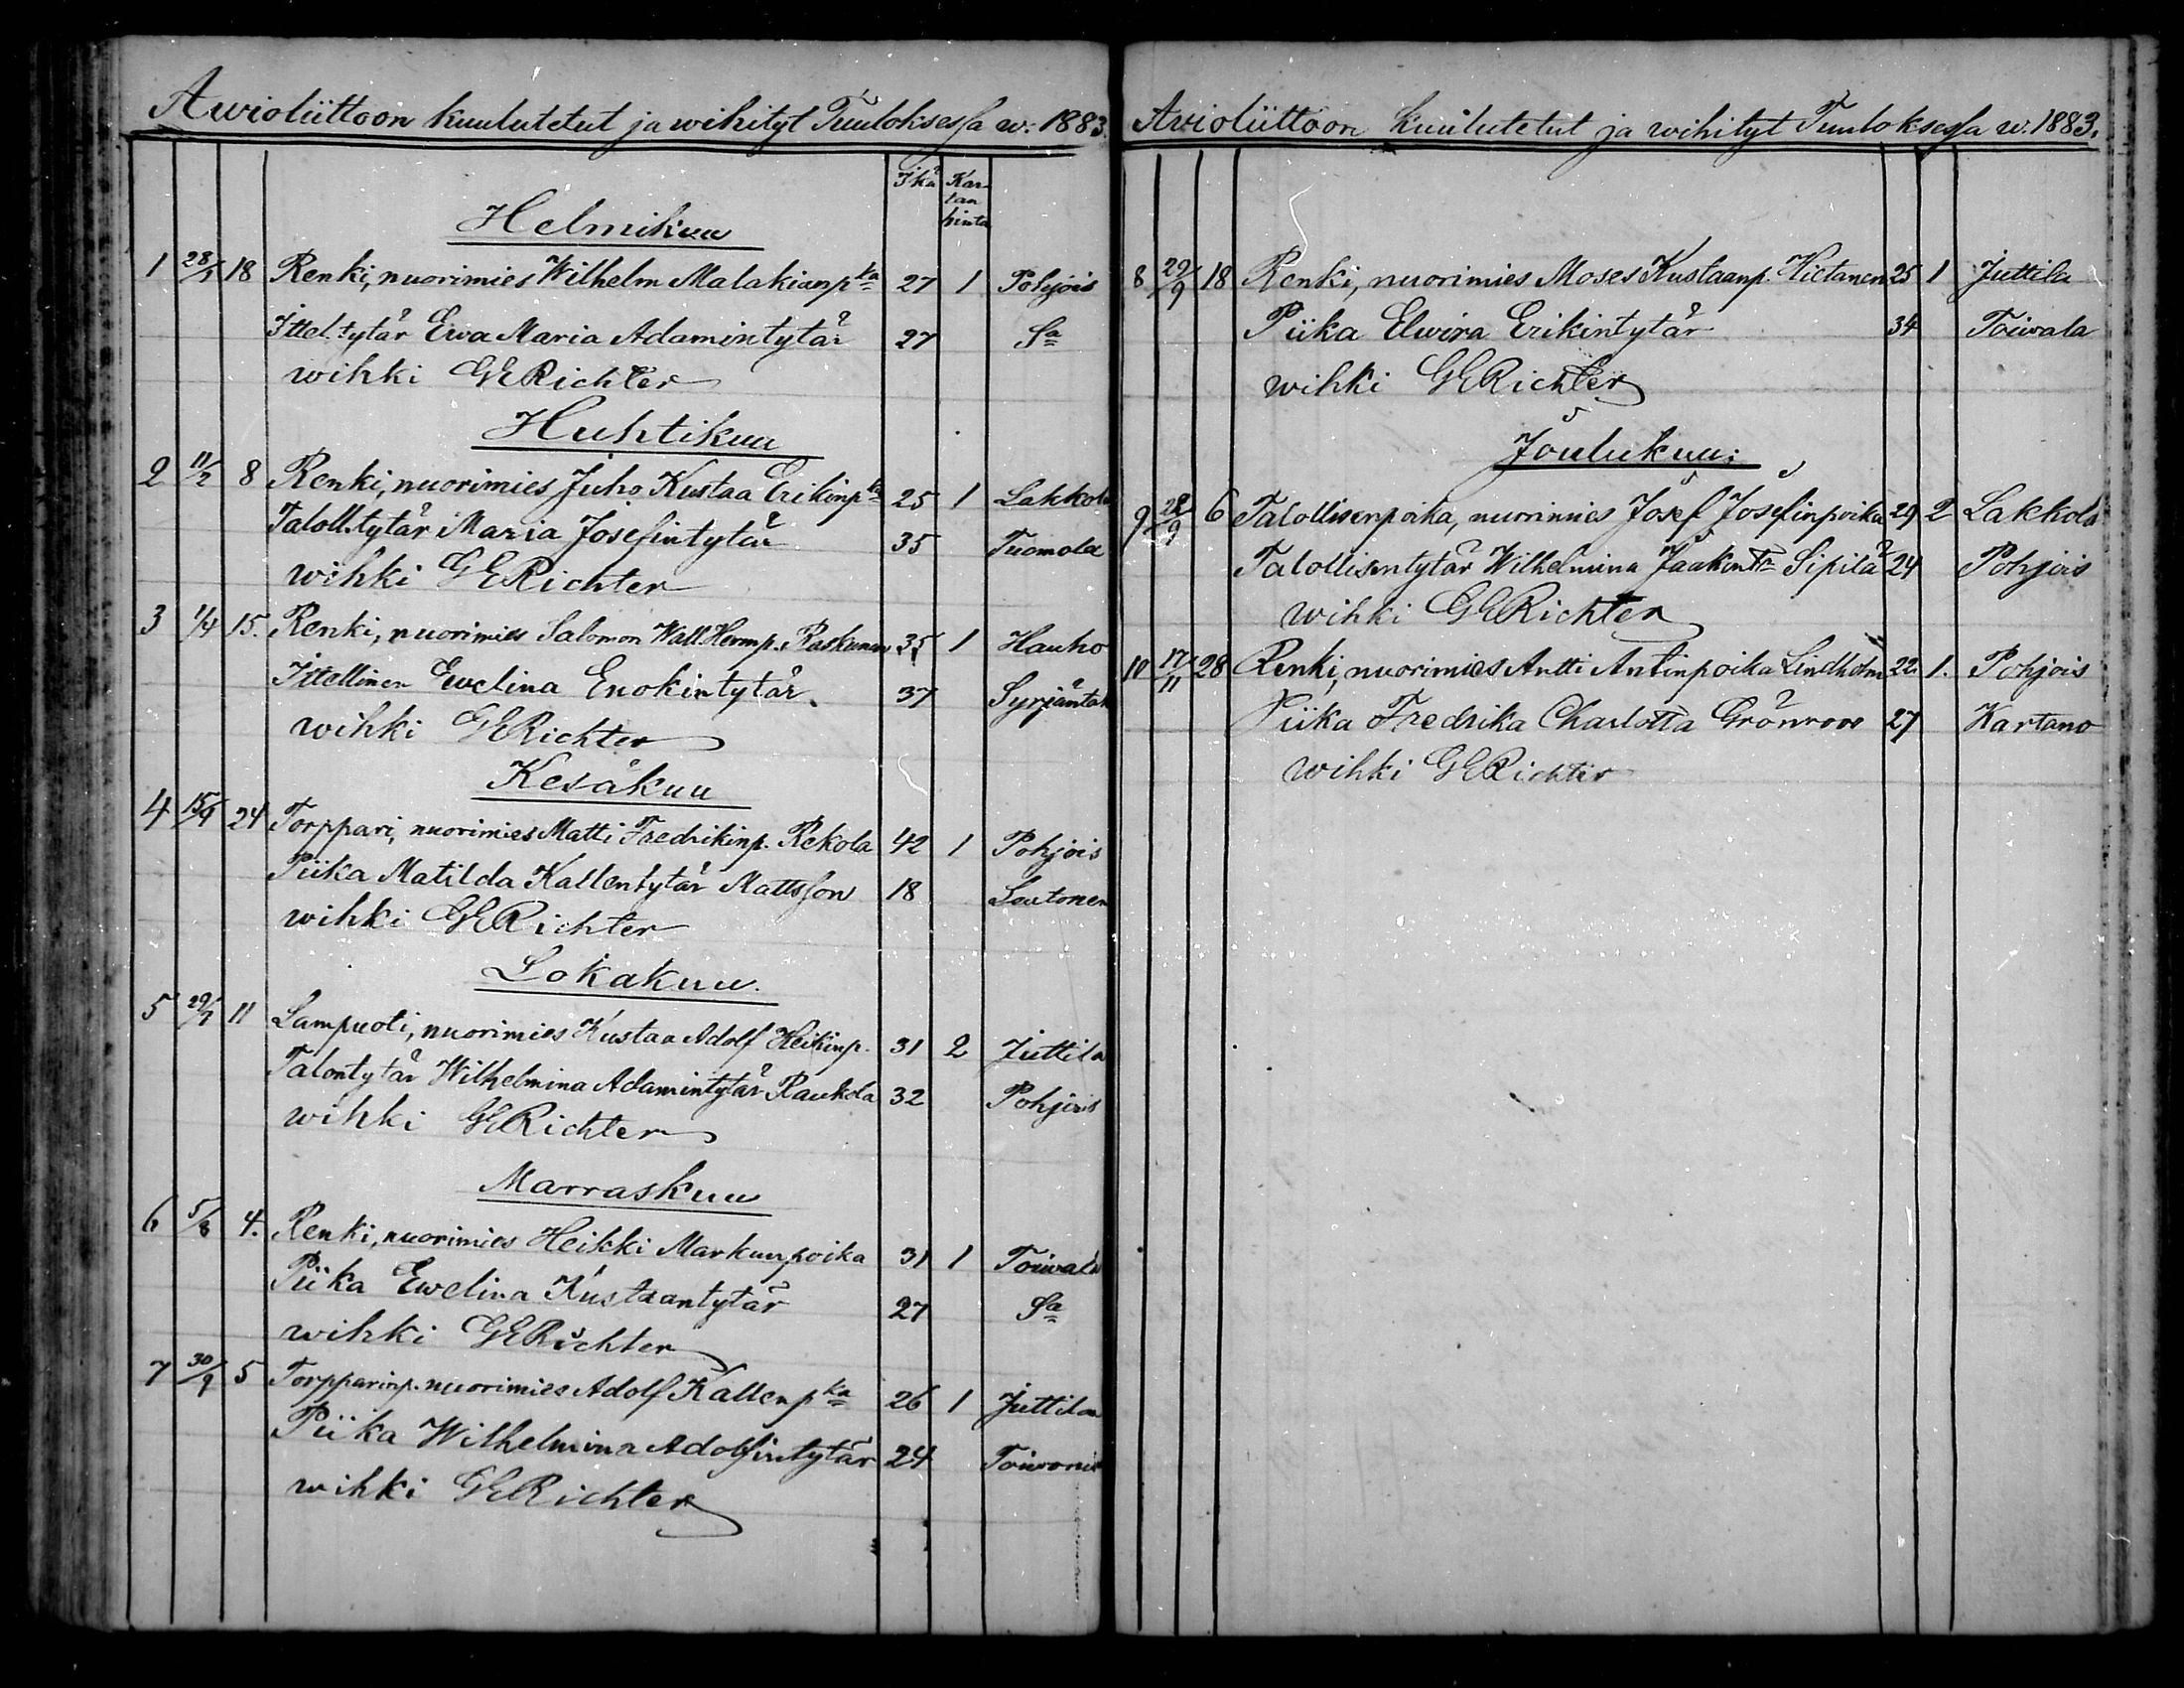 Awioliittoon kuulutetut ja wihityt Tuuloksessa w: 1883.
Ikä Kar-
tan
hinta
Helmikuu
1 28/1 18 Renki, nuorimies Wilhelm Malakianpka 27 1 Pohjois
Ittel. tytär Ewa Maria Adamintytär 27 Sa
wihki GERichter
Huhtikuu
2 11/2 8 Renki, nuorimies Juho Kustaa Erikinpka 25 1 Lakkola
Taloll. tytär Maria Josefintytär 35 Tuomola
wihki GERichter
3 1/4 15. Renki, nuorimies Salomon Wall. Hermp. Raskunen 35 1 Hauho
Ittellinen Ewelina Enokintytär. 37 Syrjäntak
wihki GERichter
Kesäkuu
4 15/4 24 Torppari, nuorimies Matti Fredrikinp. Rekola 42 1 Pohjois
Piika Matilda Kallentytär Mattsson 18 Sautonen
wihki GERichter
Lokakuu.
5 29/7 11 Lampuoti, nuorimies Kustaa Adolf Heikinp. 31 2 Juttila
Talontytär Wilhelmina Adamintytär Raukola 32 Pohjois
wihki GERichter
Marraskuu
6 5/8 4. Renki, nuorimies Heikki Markunpoika 31 1 Toiwala
Piika Ewelina Kustaantytär 27 Sa
wihki GERichter
7 30/9 5 Torpparinp. nuorimies Adolf Kallenpka 26 1 Juttila
Piika Wilhelmina Adolfintytär 24 Toiwonie
wihki GERichter
Awioliittoon kuulutetut ja wihityt Tuuloksessa w. 1883.
8 29/9 18 Renki, nuorimies Moses Kustaanp. Hietanen 25 1 Juttila
Piika Elwira Erikintytär 34 Toiwala
wihki GERichter
Joulukuu:
9 28/9 6 Talollisenpoika, nuorimies Josef Josefinpoika 29 2 Lakkola
Talollisentytär Wilhelmina Jaakintr Sipilä 24 Pohjois
wihki GERichter
10 17/11 28 Renki, nuorimies Antti Antinpoika Lindholm 22. 1. Pohjois
Piika Fredrika Charlotta Grönroos 27 Kartano
wihki GERichter